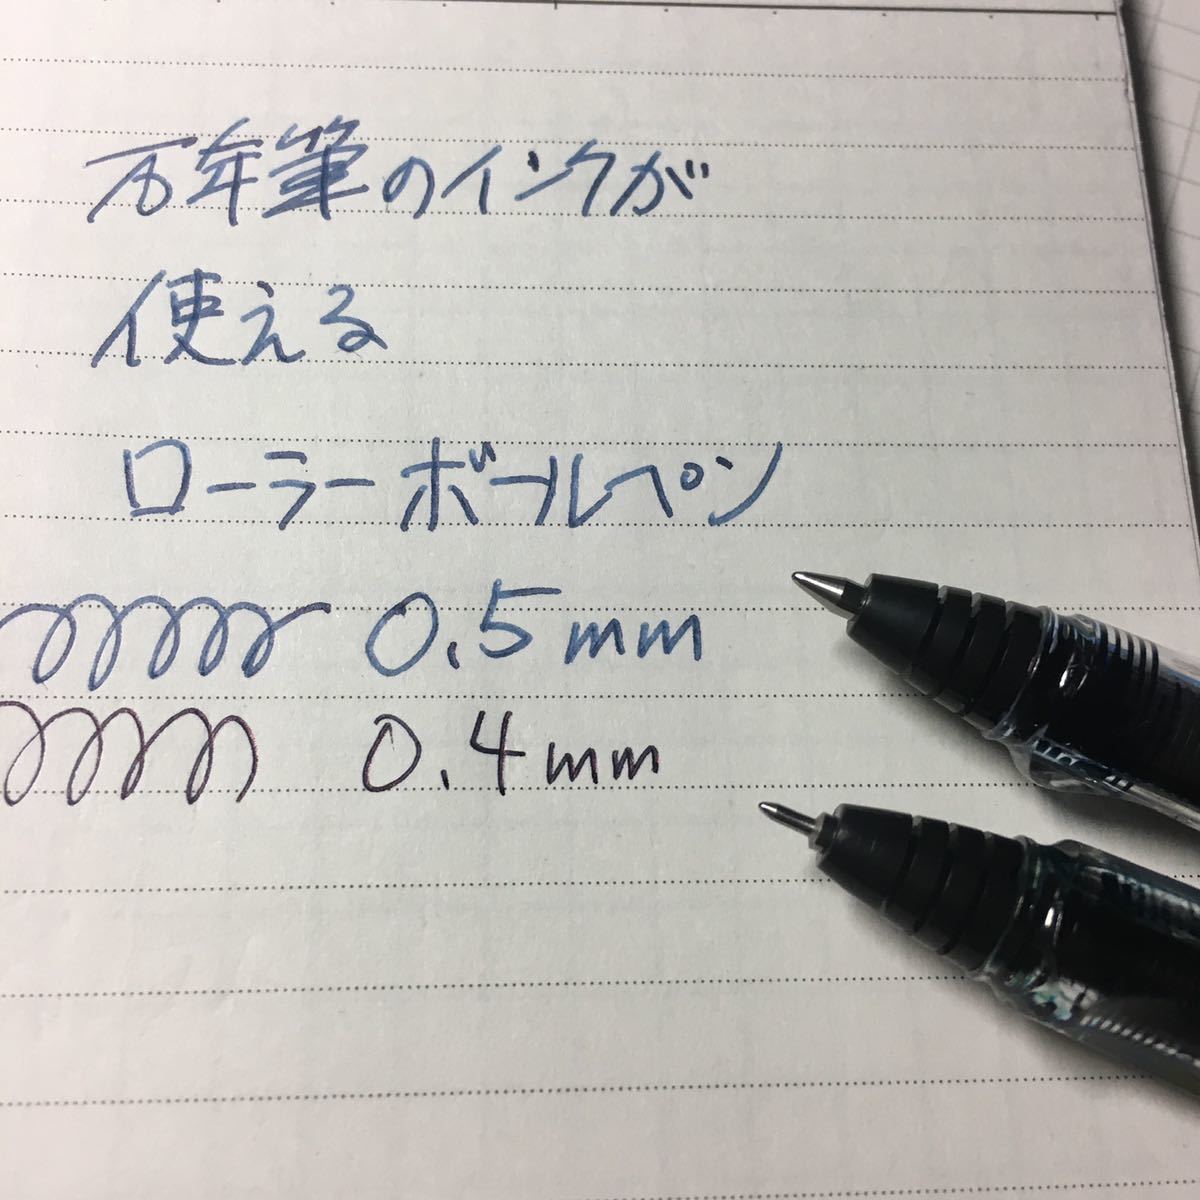 万年筆のインクが
使える
ローラーボールペン
0.5mm
0.4mm